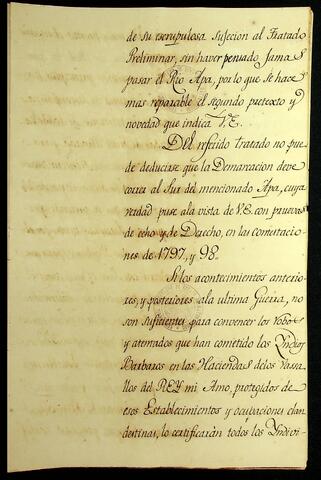 de su escrupulosa sujecion al Tratado
Preliminar, sin haver pensado Jamas
pasar el Rio Apa, por lo que se hace
mas reparable el segundo pretexto y
novedad que indica V.E.
Del referido tratado no pue
de deducirse que la Demarcacion deve
correr al Sur del mencionado Apa, cuya
verdad puse ala vista de V.E. con pruevas
de echo y de Derecho, en las contestacio
nes de 1797, y 98.
Si los acontecimientos anterio
res, y posteriores ala ultima Guerra, no
son suficientes para convencer los robos
y atentados que han cometido los Yndios
Barbaros en las Haciendas delos Vasa
llos del REY mi Amo, protegidos de
esos Establecimientos y ocupaciones clan
destinas, lo certificarán todos los Yndivi